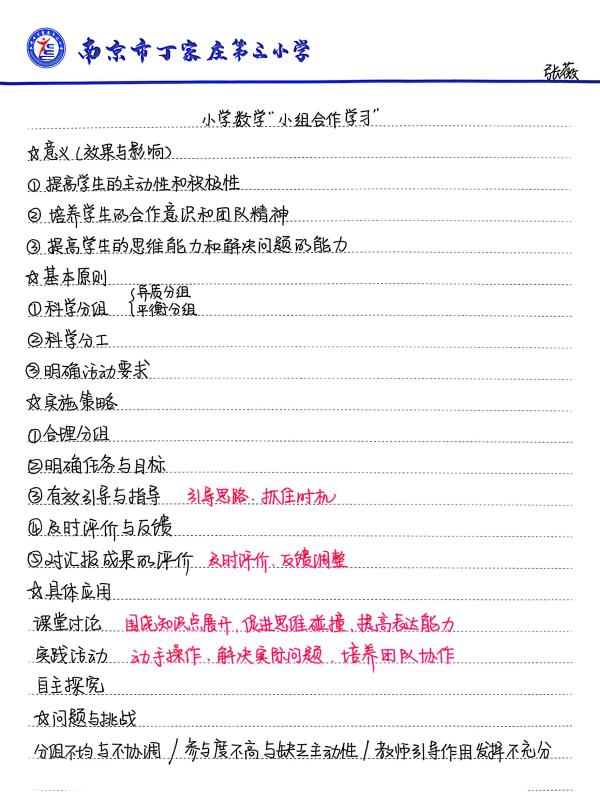 南京市丁家庄第二小学
张薇
小学数学“小组合作学习”
☆意义(效果与影响)
①提高学生的主动性和积极性
②培养学生的合作意识和团队精神
③提高学生的思维能力和解决问题的能力
☆基本原则
①科学分组{异质分组
平衡分组
②科学分工
③明确活动要求
☆实施策略
①合理分组
②明确任务与目标
③有效引导与指导 引导思路、抓住时机
④及时评价与反馈
⑤对汇报成果的评价 及时评价、反馈调整
☆具体应用
课堂讨论 围绕知识点展开、促进思维碰撞、提高表达能力
实践活动 动手操作、解决实际问题、培养团队协作
自主探究
☆问题与挑战
分组不均与不协调/参与度不高与缺乏主动性/教师引导作用发挥不充分